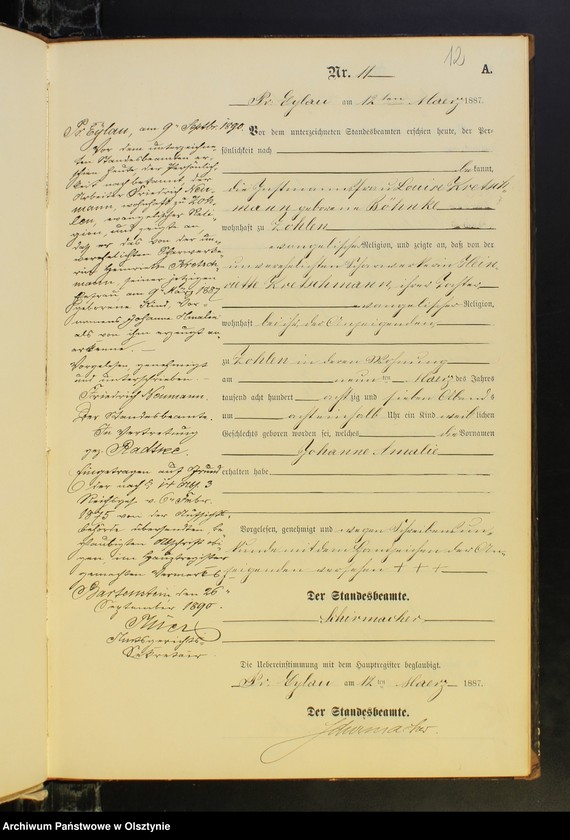 12
Nr. 11
A.
Pr. Eylau am 12ten Maerz 1887.
Vor dem unterzeichneten Standesbeamten erschien heute, der Per-
sönlichkeit nach
bekannt,
die Instmannsfrau Louise Kretsch-
mann geborene Köhnke
wohnhaft zu Zohlen
evangelischer Religion, und zeigte an, daß von der
unverehelichten Scharwerkerin Hein-
riette Kretschmann, ihrer Tochter
evangelischer Religion,
wohnhaft bei ihr, der Anzeigenden,
zu Zohlen in deren Wohnung
am neunten Maerz des Jahres
tausend acht hundert achtzig und sieben Abends
um achteinhalb Uhr ein Kind weiblichen
Geschlechts geboren worden sei, welches die Vornamen
Johanne Amalie
erhalten habe.
Vorgelesen, genehmigt und wegen Schreibensun-
kunde mit dem Handzeichen der An-
zeigenden versehen + + +
Der Standesbeamte.
Schirmacher
Die Uebereinstimmung mit dem Hauptregister beglaubigt.
Pr. Eylau am 12ten Maerz 1887.
Der Standesbeamte.
Schirmacher.
Pr. Eylau, am 9ten Septbr. 1890.
Vor dem unterzeichne-
ten Standesbeamten er-
schien heute, der Persönlich-
keit nach bekannt, der
Arbeiter Friedrich Neu-
mann, wohnhaft zu Zoh-
len, evangelischer Reli-
gion, und zeigte an,
daß er das von der un-
verehelichten Scharwerke-
rin Henriette Kretsch-
mann seiner jetzigen
Ehefrau am 9. März 1887
geborene Kind, Vor-
namens Johanne Amalie
als von ihm erzeugt an-
erkenne.
Vorgelesen genehmigt
und unterschrieben
Friedrich Neumann.
Der Standesbeamte.
In Vertretung
gez. Radtke.
Eingetragen auf Grund
der nach § 14 Abs. 3
Reichsges. v. 6. Febr.
1875 von der Aufsichts-
behörde übersendten be-
glaubigten Abschrift des
im Hauptregister
gemachten Vermerkes.
Bartenstein, den 26
September 1890.
Amtsgerichts-
Sekretair
Archiwum Państwowe w Olsztynie